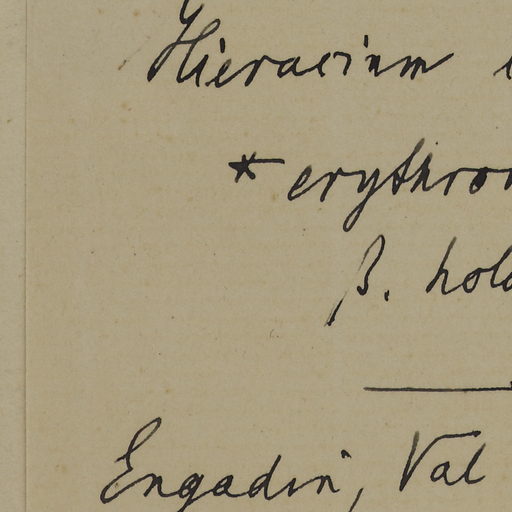 Hieracium
* erythro
β. holo
Engadin, Val